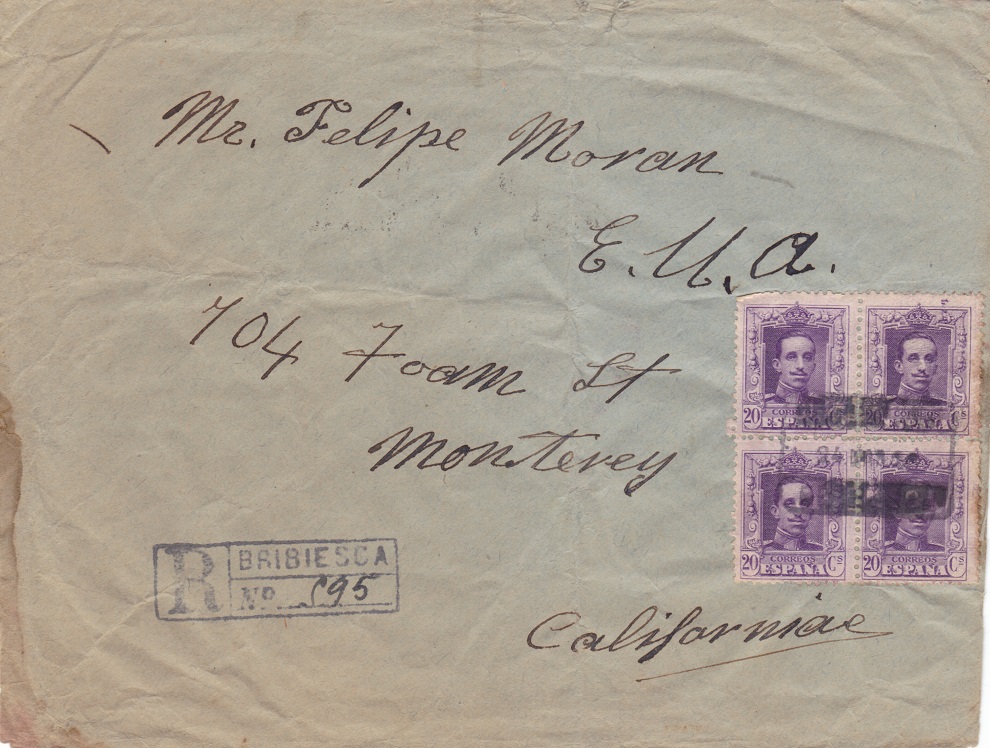 Mr. Felipe Moran
E.U.A.
704 Foam St
Monterey
Californiae
R BRIBIESCA
Nº 595
20 CORREOS ESPAÑA Cs
20 CORREOS ESPAÑA Cs
20 CORREOS ESPAÑA Cs
20 CORREOS ESPAÑA Cs